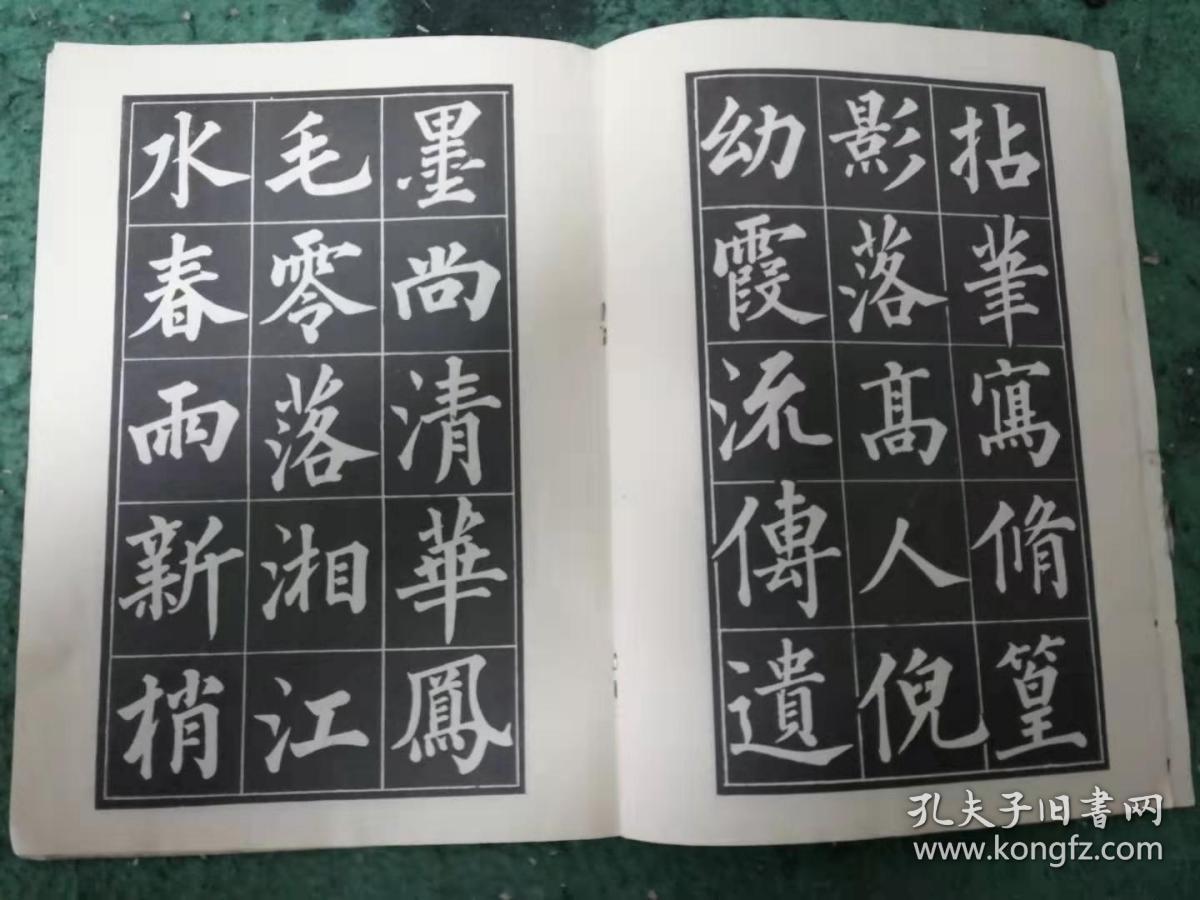 拈筆寫脩篁
影落髙人倪
幼霞流傳遺
墨尚清華鳳
毛零落湘江
水春雨新梢
孔夫子旧書网
www.kongfz.com